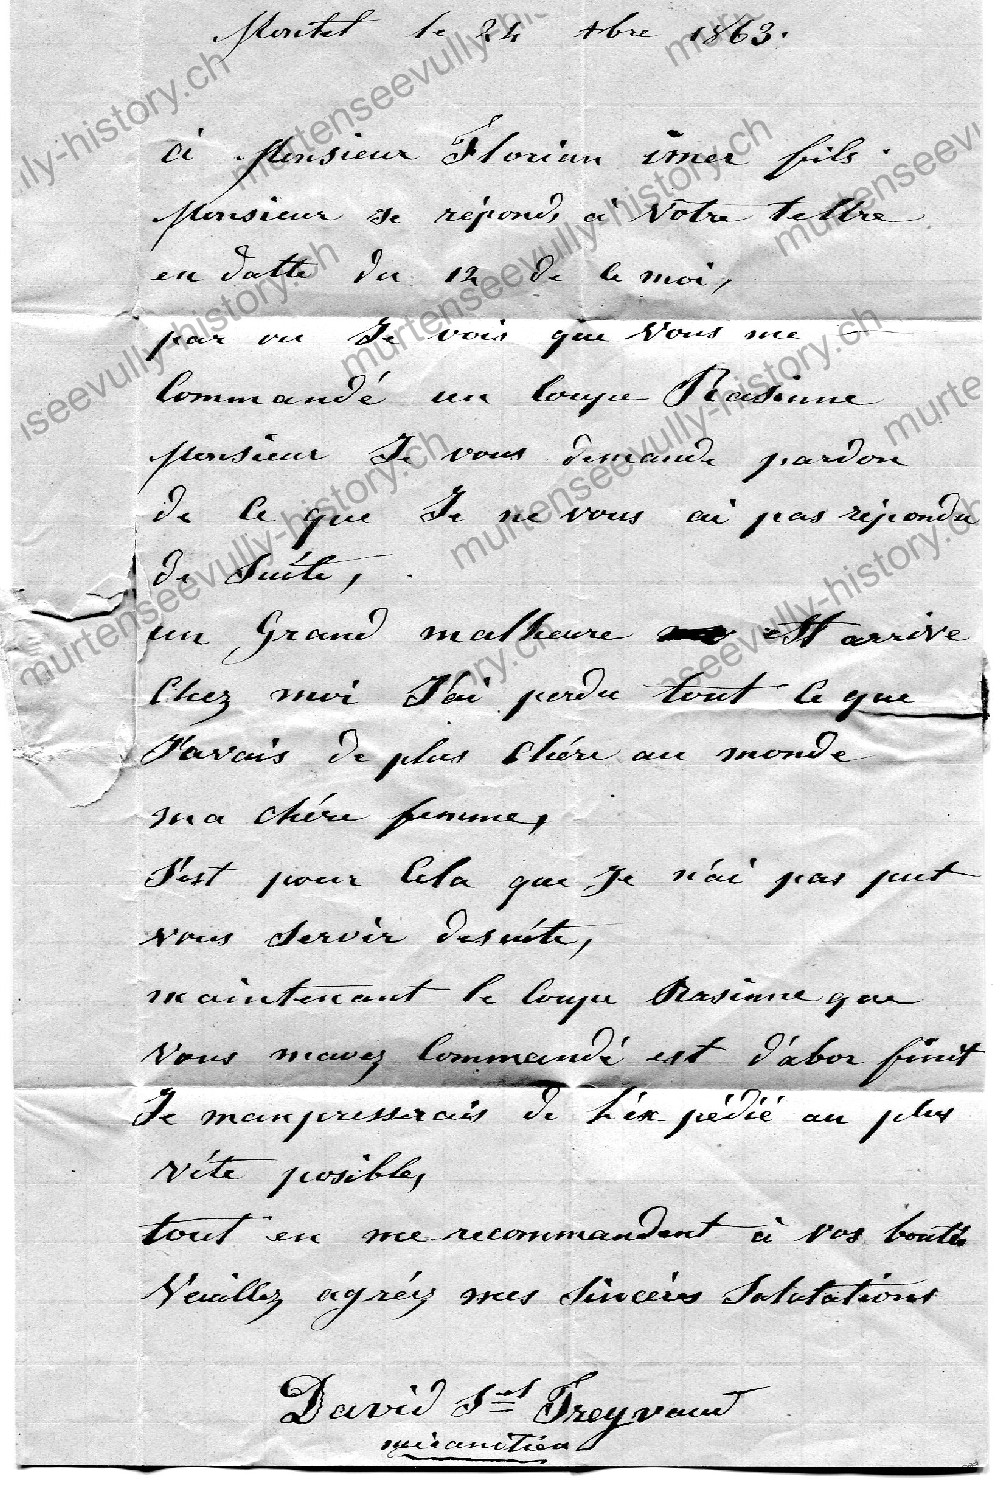 Montet le 24 xbre 1863.
à Monsieur Florian imer fils.
Monsieur Je répond, à Votre lettre
en datte du 12 de ce moi,
par ou Je vois que Vous me
Commandé un Coupe Rasinne
Monsieur Je vous demande pardon
de ce que Je ne vous ai pas répondu
de Suite,
un Grand malheure est arrivé
Chez moi J'ai perdu tout Ce que
J'avais de plus Chére au monde
ma chére femme,
S'est pour Cela que Je n'ai pas put
vous Servir desuite,
maintenant le Coupe Rasinne que
Vous mavez Commandé est d'abor finit
Je manpresserais de l'éxpédié au plus
vite posible,
tout en me recommandent à vos bontés
Veuillez agréez mes Sincéres Salutations
David Sel Freyvaud
mécanitien
murtenseevully-history.ch